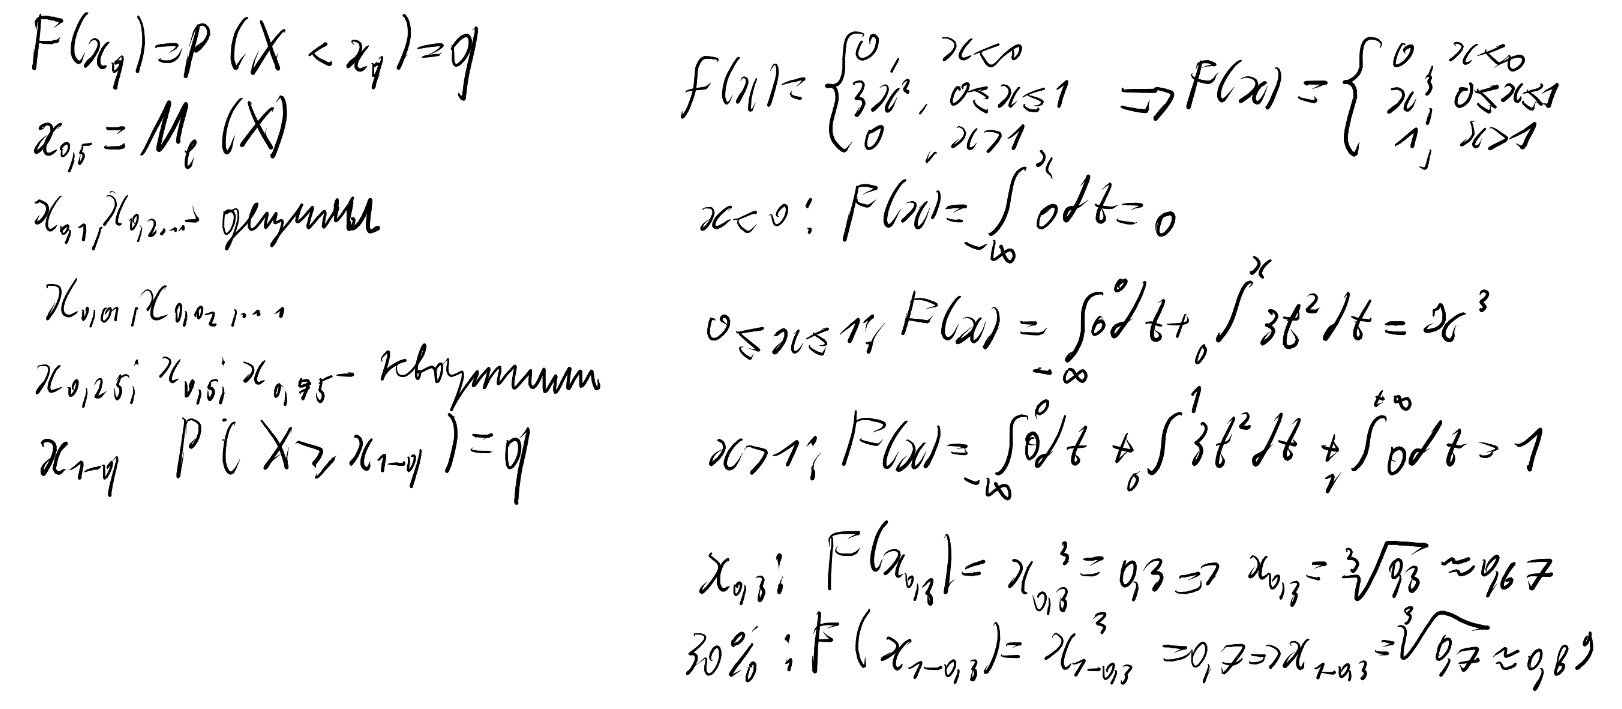 F(x_q) = P(X < x_q) = q
x_{0,5} = M_e(X)
x_{0,1}, x_{0,2}... децили
x_{0,01}, x_{0,02}, ...
x_{0,25}; x_{0,5}; x_{0,75} - квартили
x_{1-q} P(X ⩾ x_{1-q}) = q
f(x) = { 0, x<0; 3x², 0≤x≤1; 0, x>1 ⇒ F(x) = { 0, x<0; x³, 0≤x≤1; 1, x>1
x<0: F(x) = ∫_{-∞}^{x} 0dt = 0
0≤x≤1: F(x) = ∫_{-∞}^{0} 0dt + ∫_{0}^{x} 3t²dt = x³
x>1: F(x) = ∫_{-∞}^{0} 0dt + ∫_{0}^{1} 3t²dt + ∫_{1}^{+∞} 0dt = 1
x_{0,3}: F(x_{0,3}) = x_{0,3}³ = 0,3 ⇒ x_{0,3} = ∛0,3 ≈ 0,67
30%: F(x_{1-0,3}) = x_{1-0,3}³ = 0,7 ⇒ x_{1-0,3} = ∛0,7 ≈ 0,89